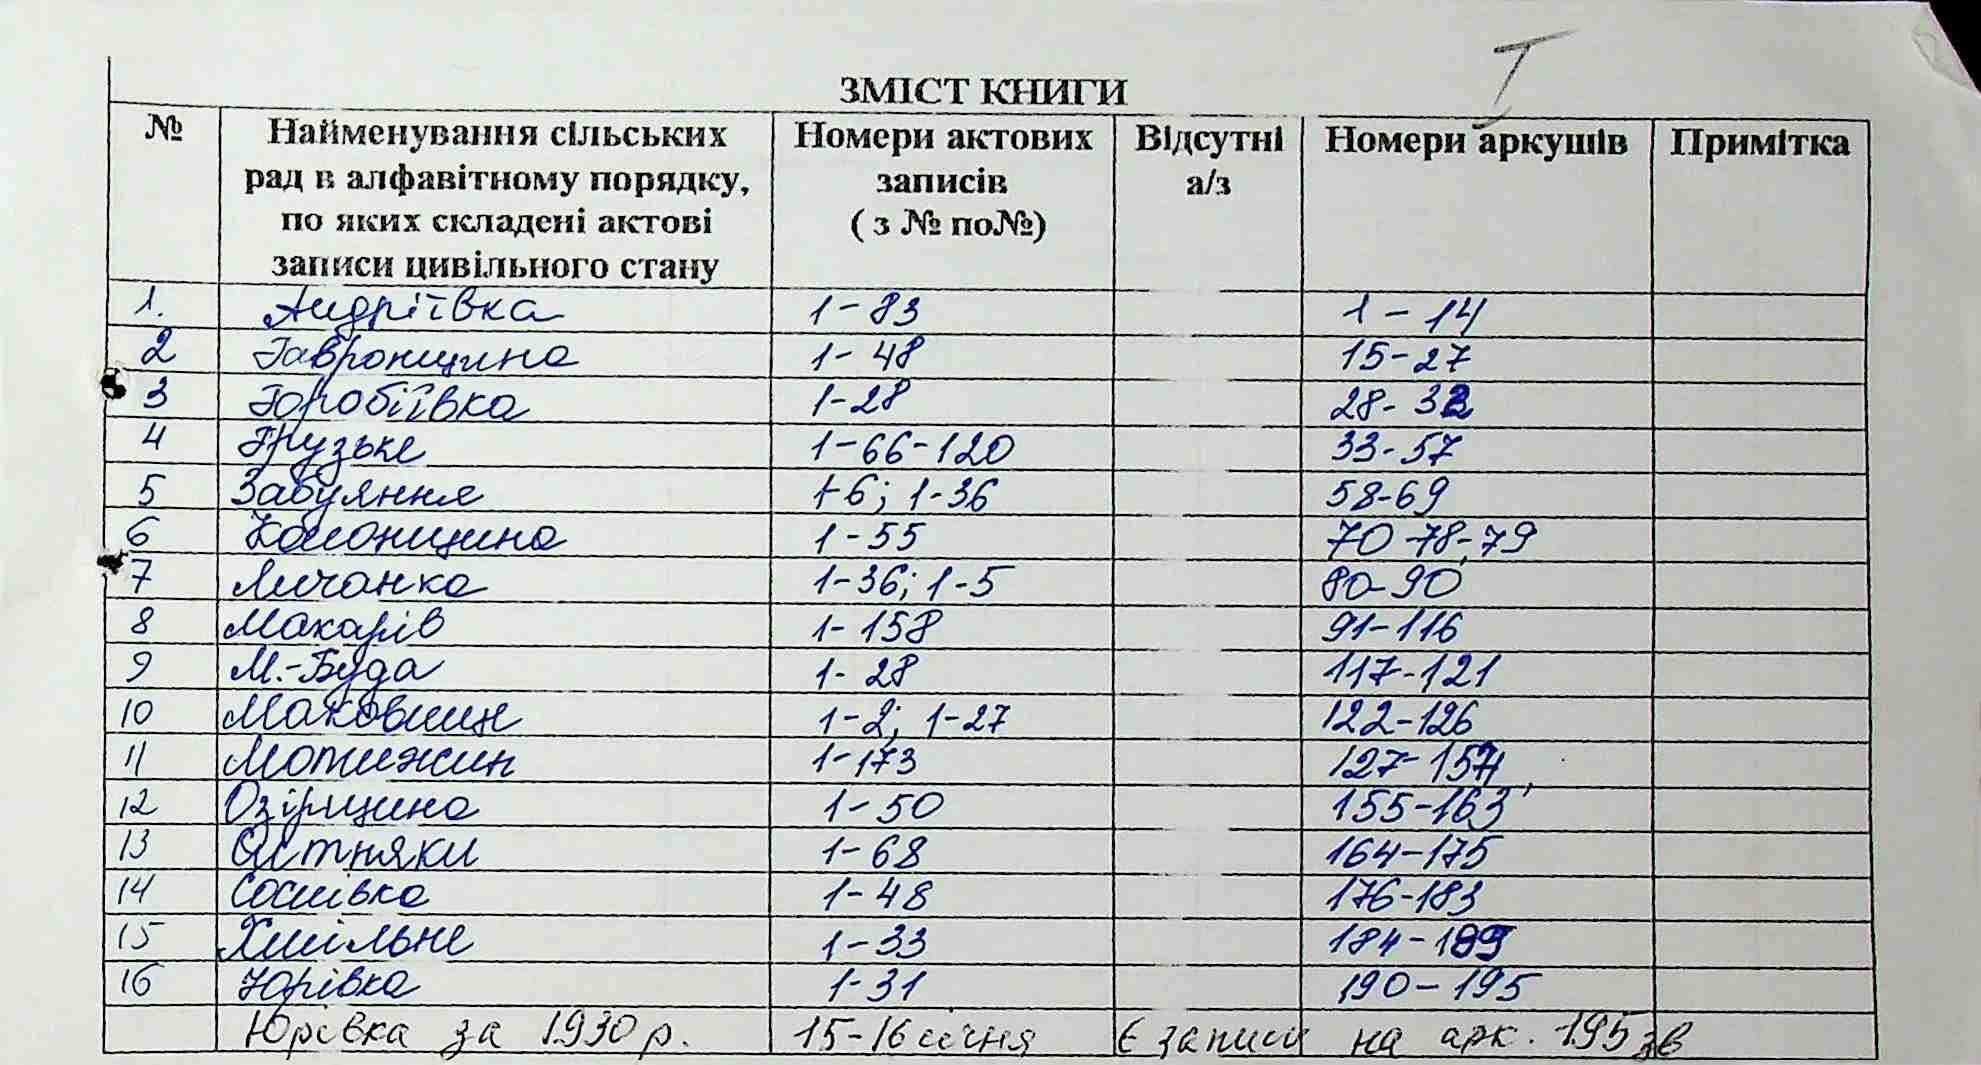 I
ЗМІСТ КНИГИ
№ Найменування сільських рад в алфавітному порядку, по яких складені актові записи цивільного стану Номери актових записів ( з № по№) Відсутні а/з Номери аркушів Примітка
1. Андріївка 1-83 1-14
2 Гавронщина 1-48 15-27
3 Горобіївка 1-28 28-32
4 Грузьке 1-66-120 33-57
5 Забуяння 1-6; 1-36 58-69
6 Колонщина 1-55 70-78-79
7 Личанка 1-36; 1-5 80-90
8 Макарів 1-158 91-116
9 М.-Буда 1-28 117-121
10 Маковище 1-2; 1-27 122-126
11 Мотижин 1-173 127-154
12 Озірщина 1-50 155-163
13 1-68 164-175
14 Соснівка 1-48 176-183
15 Хмільне 1-33 184-189
16 Юрівка 1-31 190-195
Юрівка за 1930 р. 15-16 січня Є записи на арк. 195 зв